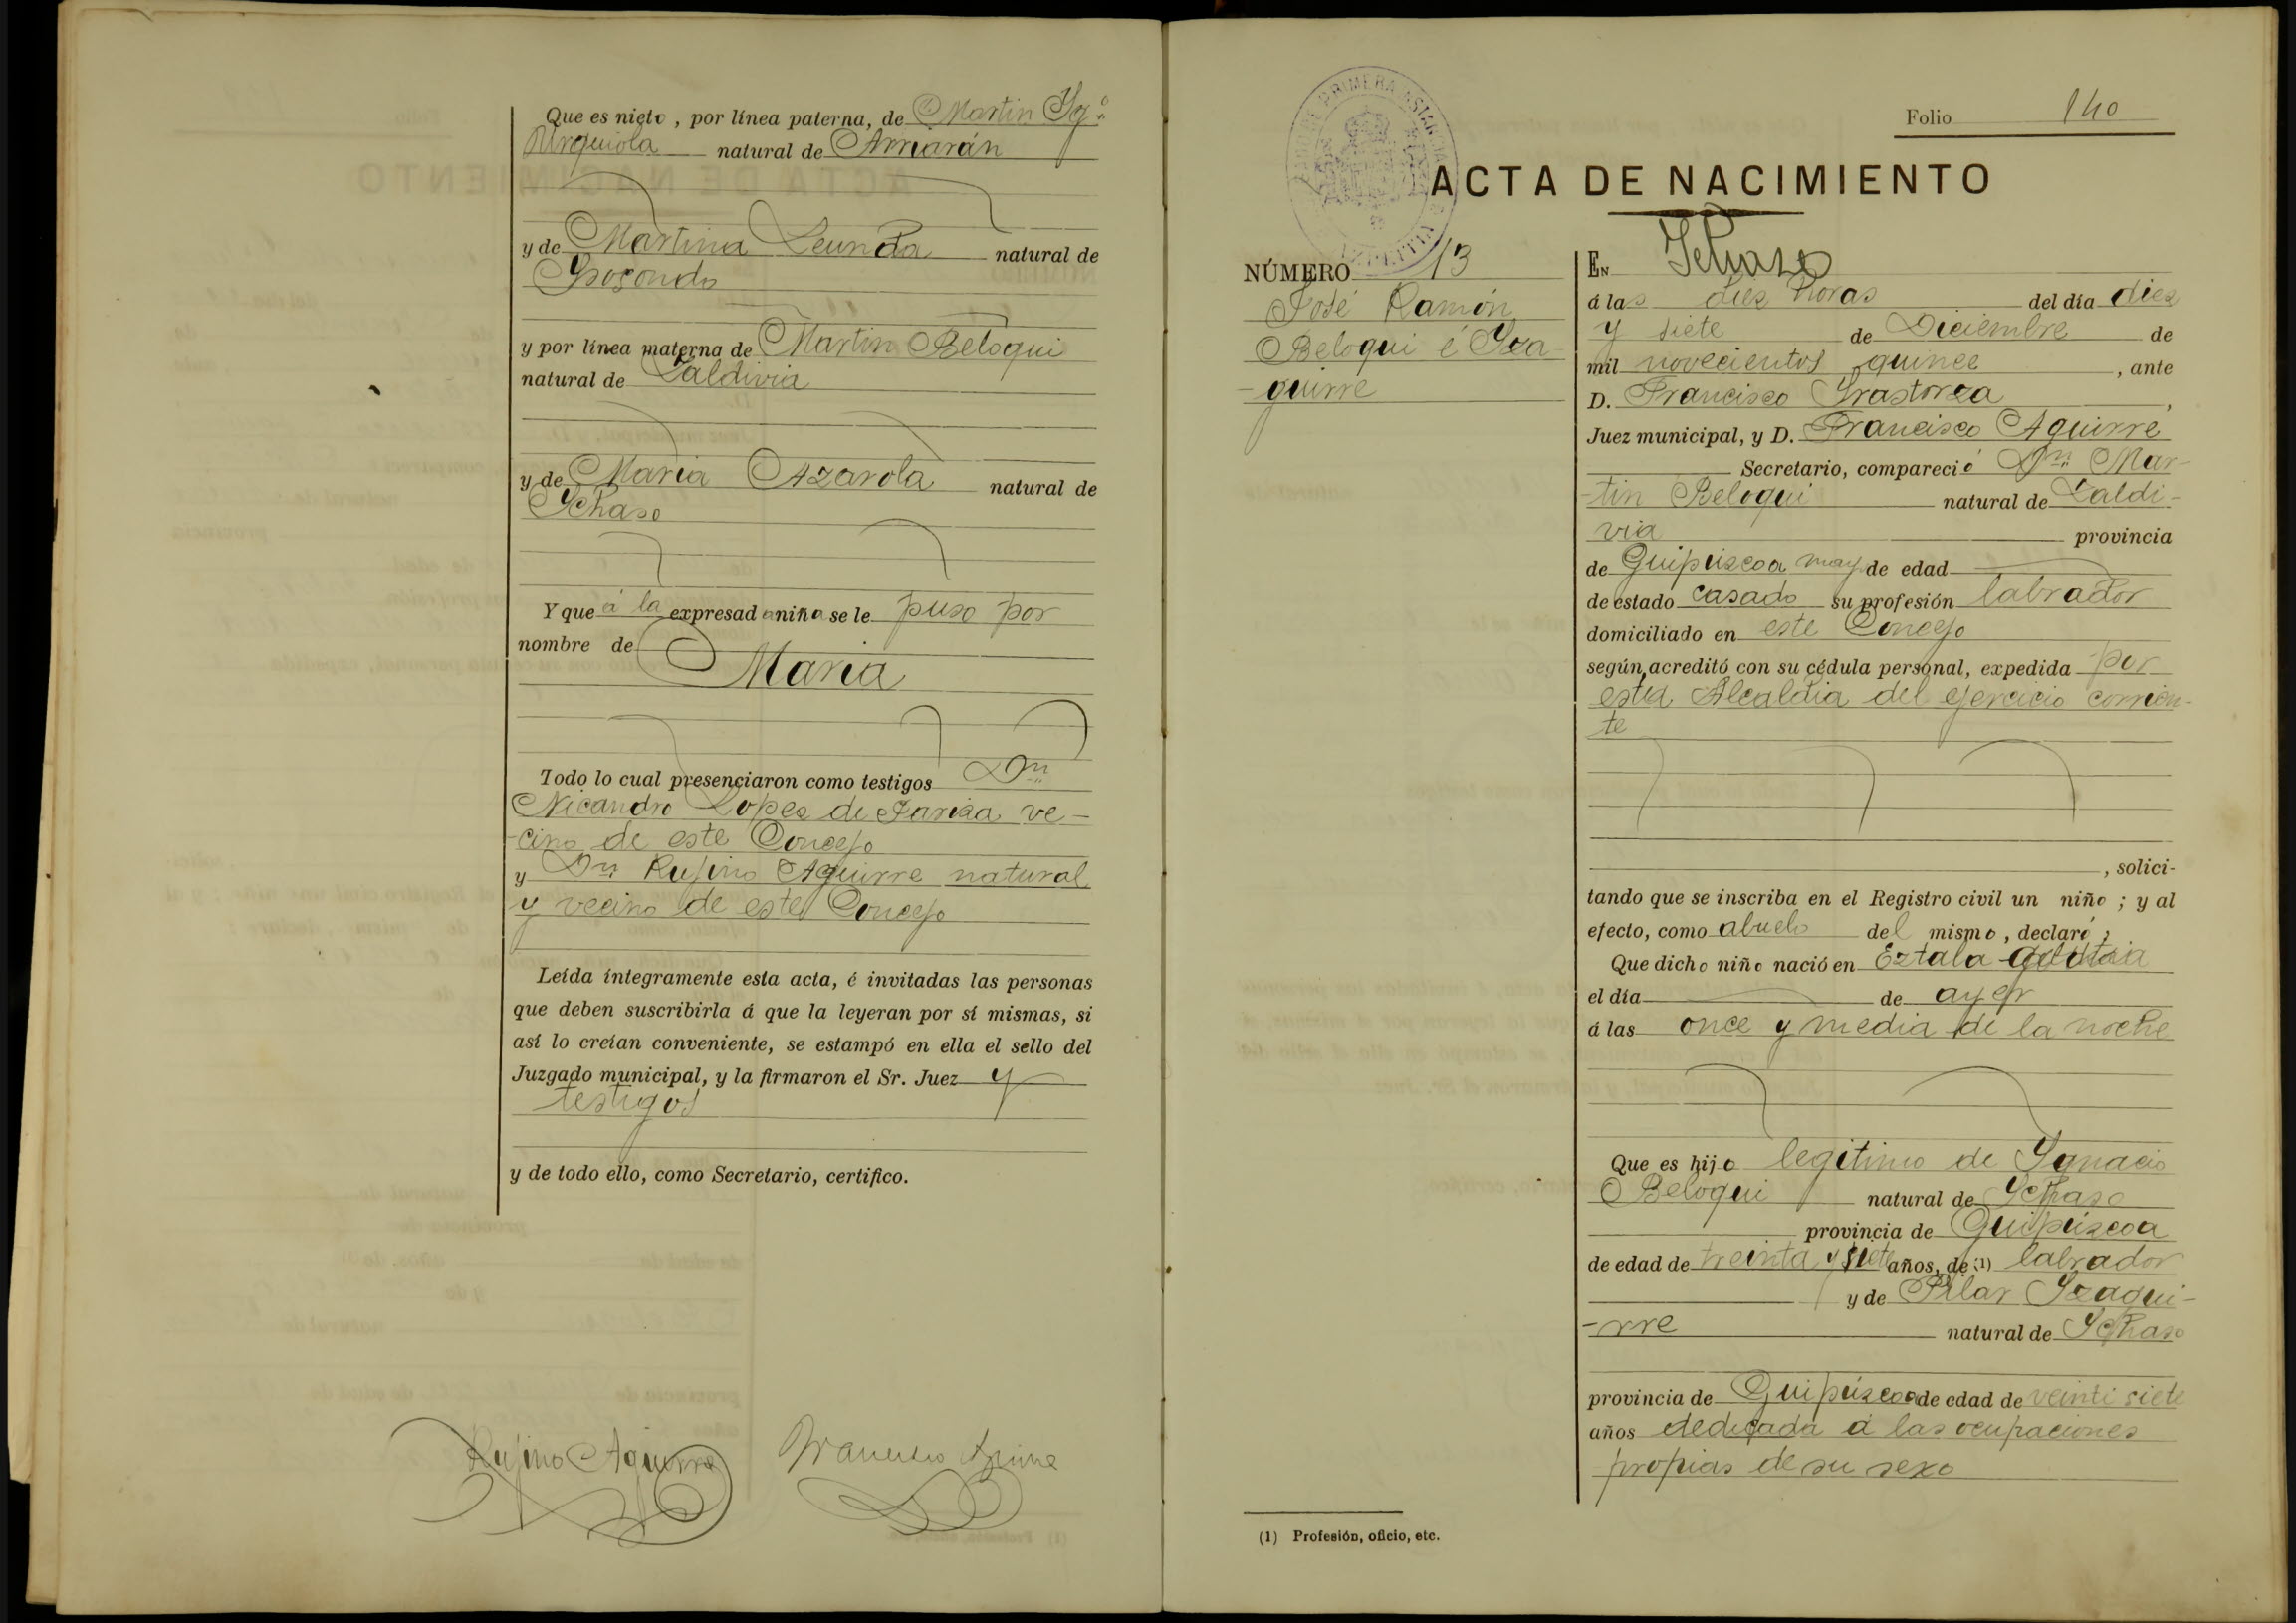 Que es nieto, por línea paterna, de Martin Yg.º
Urquiola natural de Arriarán
y de Martina Leunda natural de
Ysosondo
y por línea materna de Martin Beloqui
natural de Zaldivia
y de Maria Azarola natural de
Ychaso
Y que á la expresada niña se le puso por
nombre de
Maria
Todo lo cual presenciaron como testigos Dn
Nicandro Lopez de Gariza ve-
-cino de este Concejo
y Dn Rufino Aguirre natural
y vecino de este Concejo
Leída íntegramente esta acta, é invitadas las personas
que deben suscribirla á que la leyeran por sí mismas, si
así lo creían conveniente, se estampó en ella el sello del
Juzgado municipal, y la firmaron el Sr. Juez y
testigos
y de todo ello, como Secretario, certifico.
Rufino Aguirre Francisco Aguirre
Folio 140
ACTA DE NACIMIENTO
NÚMERO 13
José Ramón
Beloqui é Yza-
-guirre
En Ychaso
á las diez horas del día diez
y siete de Diciembre de
mil novecientos quince, ante
D. Francisco Yrastorza,
Juez municipal, y D. Francisco Aguirre
Secretario, compareció Dn Mar-
-tin Beloqui natural de Zaldi-
via provincia
de Guipúzcoa may. de edad
de estado casado su profesión labrador
domiciliado en este Concejo
según acreditó con su cédula personal, expedida por
esta Alcaldia del ejercicio corrien-
te
, solici-
tando que se inscriba en el Registro civil un niño; y al
efecto, como abuelo del mismo, declaró:
Que dicho niño nació en Eztala
el día de ayer
á las once y media de la noche
Que es hijo legitimo de Ygnacio
Beloqui natural de Ychaso
provincia de Guipúzcoa
de edad de treinta y siete años, de (1) labrador
y de Pilar Yzagui-
-rre natural de Ychaso
provincia de Guipúzcoa de edad de veinti siete
años dedicada á las ocupaciones
propias de su sexo
(1) Profesión, oficio, etc.